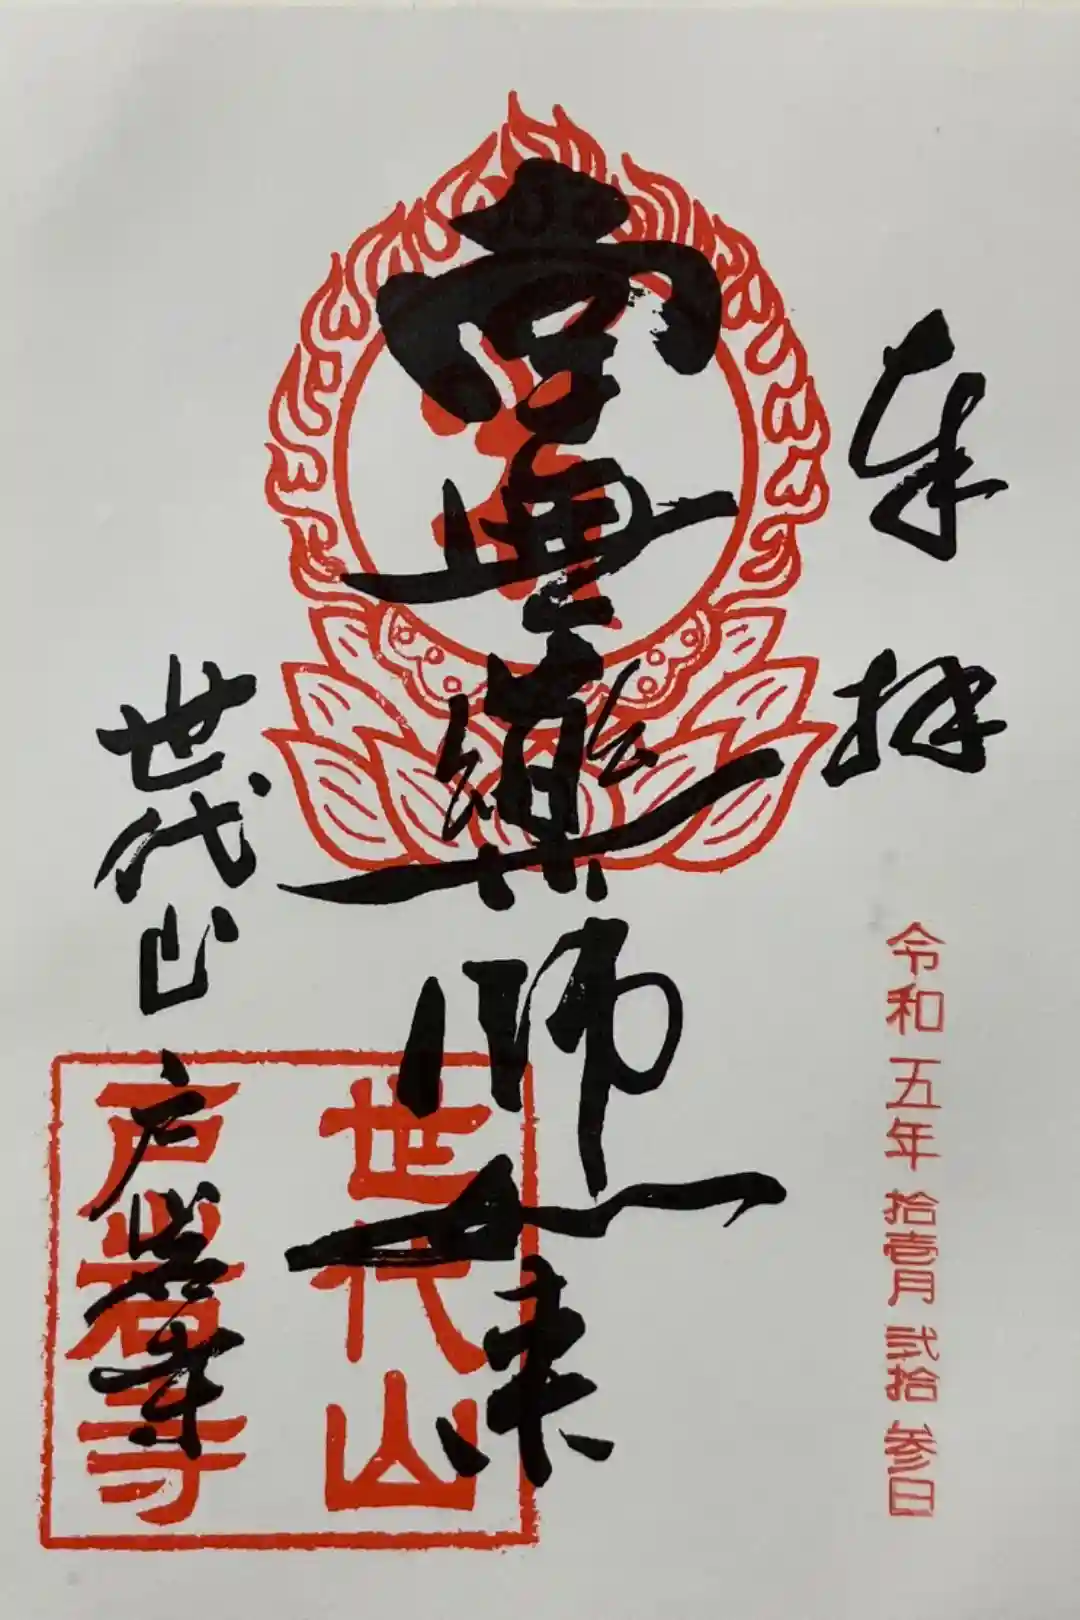 奉拝
令和五年 拾壱月 弐拾参日
薬師如来
世代山
戸岩寺
世代山
戸岩寺